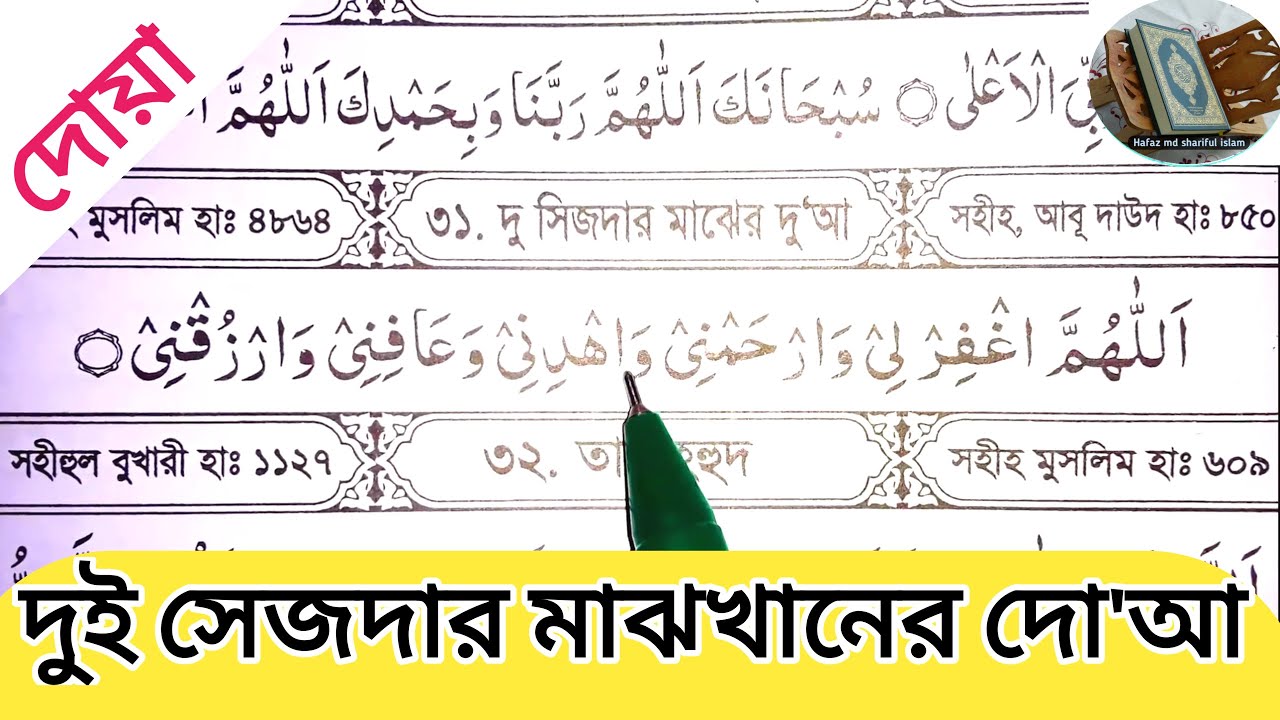 দোয়া
Hafaz md shariful islam
بِّيَ الْاَعْلٰى ۝ سُبْحَانَكَ اَللّٰهُمَّ رَبَّنَا وَبِحَمْدِكَ اَللّٰهُمَّ
মুসলিম হাঃ ৪৮৬৪
৩১. দু সিজদার মাঝের দু‘আ
সহীহ, আবূ দাউদ হাঃ ৮৫০
اَللّٰهُمَّ اغْفِرْ لِيْ وَارْحَمْنِيْ وَاهْدِنِيْ وَعَافِنِيْ وَارْزُقْنِيْ ۝
সহীহুল বুখারী হাঃ ১১২৭
৩২.
সহীহ মুসলিম হাঃ ৬০৯
দুই সেজদার মাঝখানের দো'আ